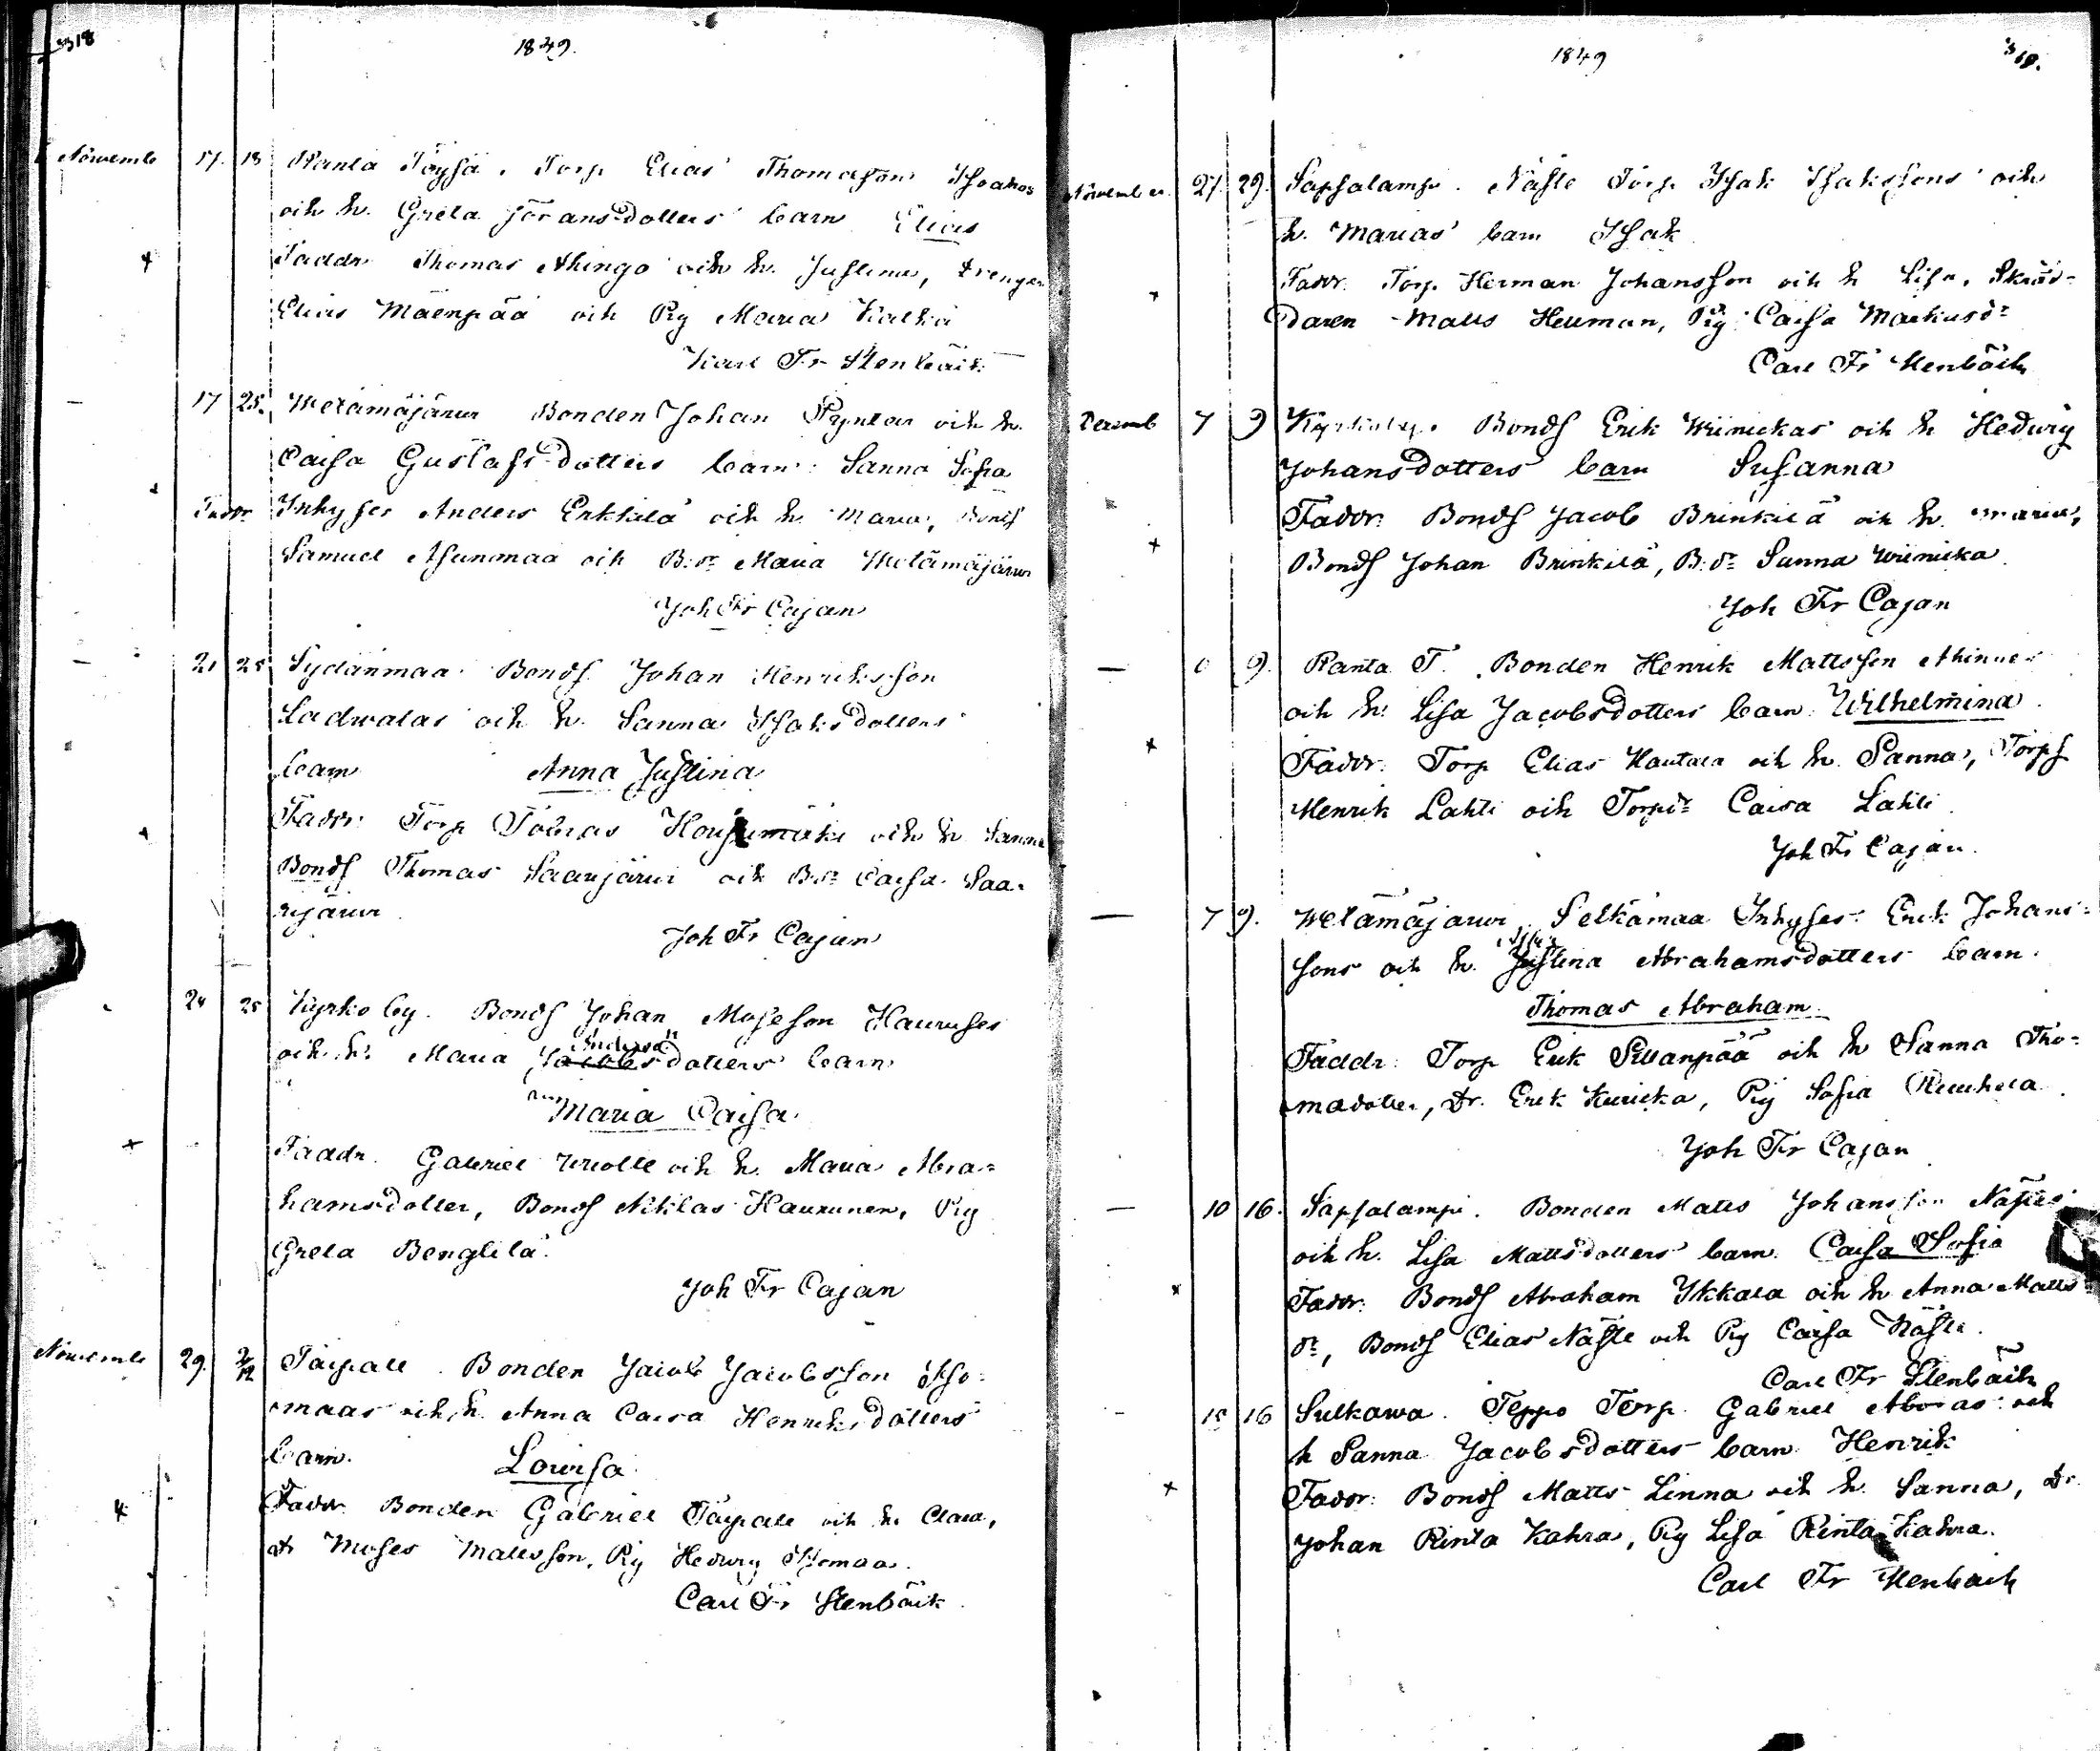 318
1849.
Novemb 17. 18 Ranta Töysä. Torp Elias Thomasson
och h. Greta Jöransdotters barn Elias
Faddr Thomas Ahingo och h. Justina, drengen
Elias Mäenpää och Pig Maria
Karl Fr Stenbäck
17 25. Metämäjärwi Bonden Johan Ryntas och h.
Caisa Gustafsdotters barn: Sanna Sofia
Faddr Inhyses Anders Erkkilä och h. Maria, Bonds
Samuel Asunmaa och B:dr Maria Metämäjärwi
Joh Fr Cajan
— 21 25 Sydänmaa Bonds Johan Henriksson
Ladwalas och h. Sanna Isaksdotters
barn Anna Justina
Faddr: Torp Tobias och h Sanna
Bonds Thomas Saarijärwi och B:dr Caisa Saa-
rijärwi
Joh Fr Cajan
24 25 Kyrkoby. Bonds Johan Moseson Haurus
och h. Maria Jacobsdotters barn
Maria Caisa
Faddr. Gabriel och h. Maria Abra=
hamsdotter, Bonds Niklas Haurunen, Pig
Greta Bengtilä.
Joh Fr Cajan
Novemb 29. 2/12 Taipale. Bonden Jacob Jacobsson Iso-
maas och h. Anna Caisa Henriksdotters
barn. Lovisa
Faddr. Bonden Gabriel Taipale och h. Clara,
dr Moses Mattsson, Pig Hedvig Isomaa.
Carl Fr Stenbäck
1849
319.
November 27. 29. Sapsalampi. Näsle Torp Isak Isakssons och
h. Marias barn Isak
Faddr. Torp. Herman Johansson och h Lisa, Skräd-
daren Matts Hellman, Pig Caisa Markusdr
Carl Fr Stenbäck
Decemb 7 9 Kyrkoby. Bonds Erik Wiinickas och h Hedwig
Johansdotters barn Susanna
Faddr: Bonds Jacob Brinkilä och h. Maria,
Bonds Johan Brinkilä, B:dr Sanna Wiinicka
Joh Fr Cajan
— 6 9. Ranta T. Bonden Henrik Mattsson
och h. Lisa Jacobsdotters barn Wilhelmina
Faddr: Torp Elias Hautala och h. Sanna, Torps
Henrik Lahti och Torpdr Caisa Lahti
Joh Fr Cajan.
— 7 9. Metämäjärwi, Selkämaa Inhyses Erik Johans=
sons och h. Justina Abrahamsdotters barn
Thomas Abraham
Faddr: Torp Erik Sillanpää och h Sanna Tho=
masdotter, Dr. Erik Kuricka, Pig Sofia
Joh Fr Cajan
— 10 16. Sapsalampi. Bonden Matts Johansson Näsles
och h. Lisa Mattsdotters barn Caisa Sofia
Faddr: Bonds Abraham Ykkala och h Anna Matts
dr, Bonds Elias Näsle och Pig Caisa Näsle.
Carl Fr Stenbäck
- 15 16 Sulkawa. Teppo Torp. Gabriel och
h Sanna Jacobsdotters barn Henrik
Faddr: Bonds Matts Linna och h. Sanna, Dr.
Johan Rinta Kahra, Pig Lisa Rinta Kahra.
Carl Fr Stenbäck